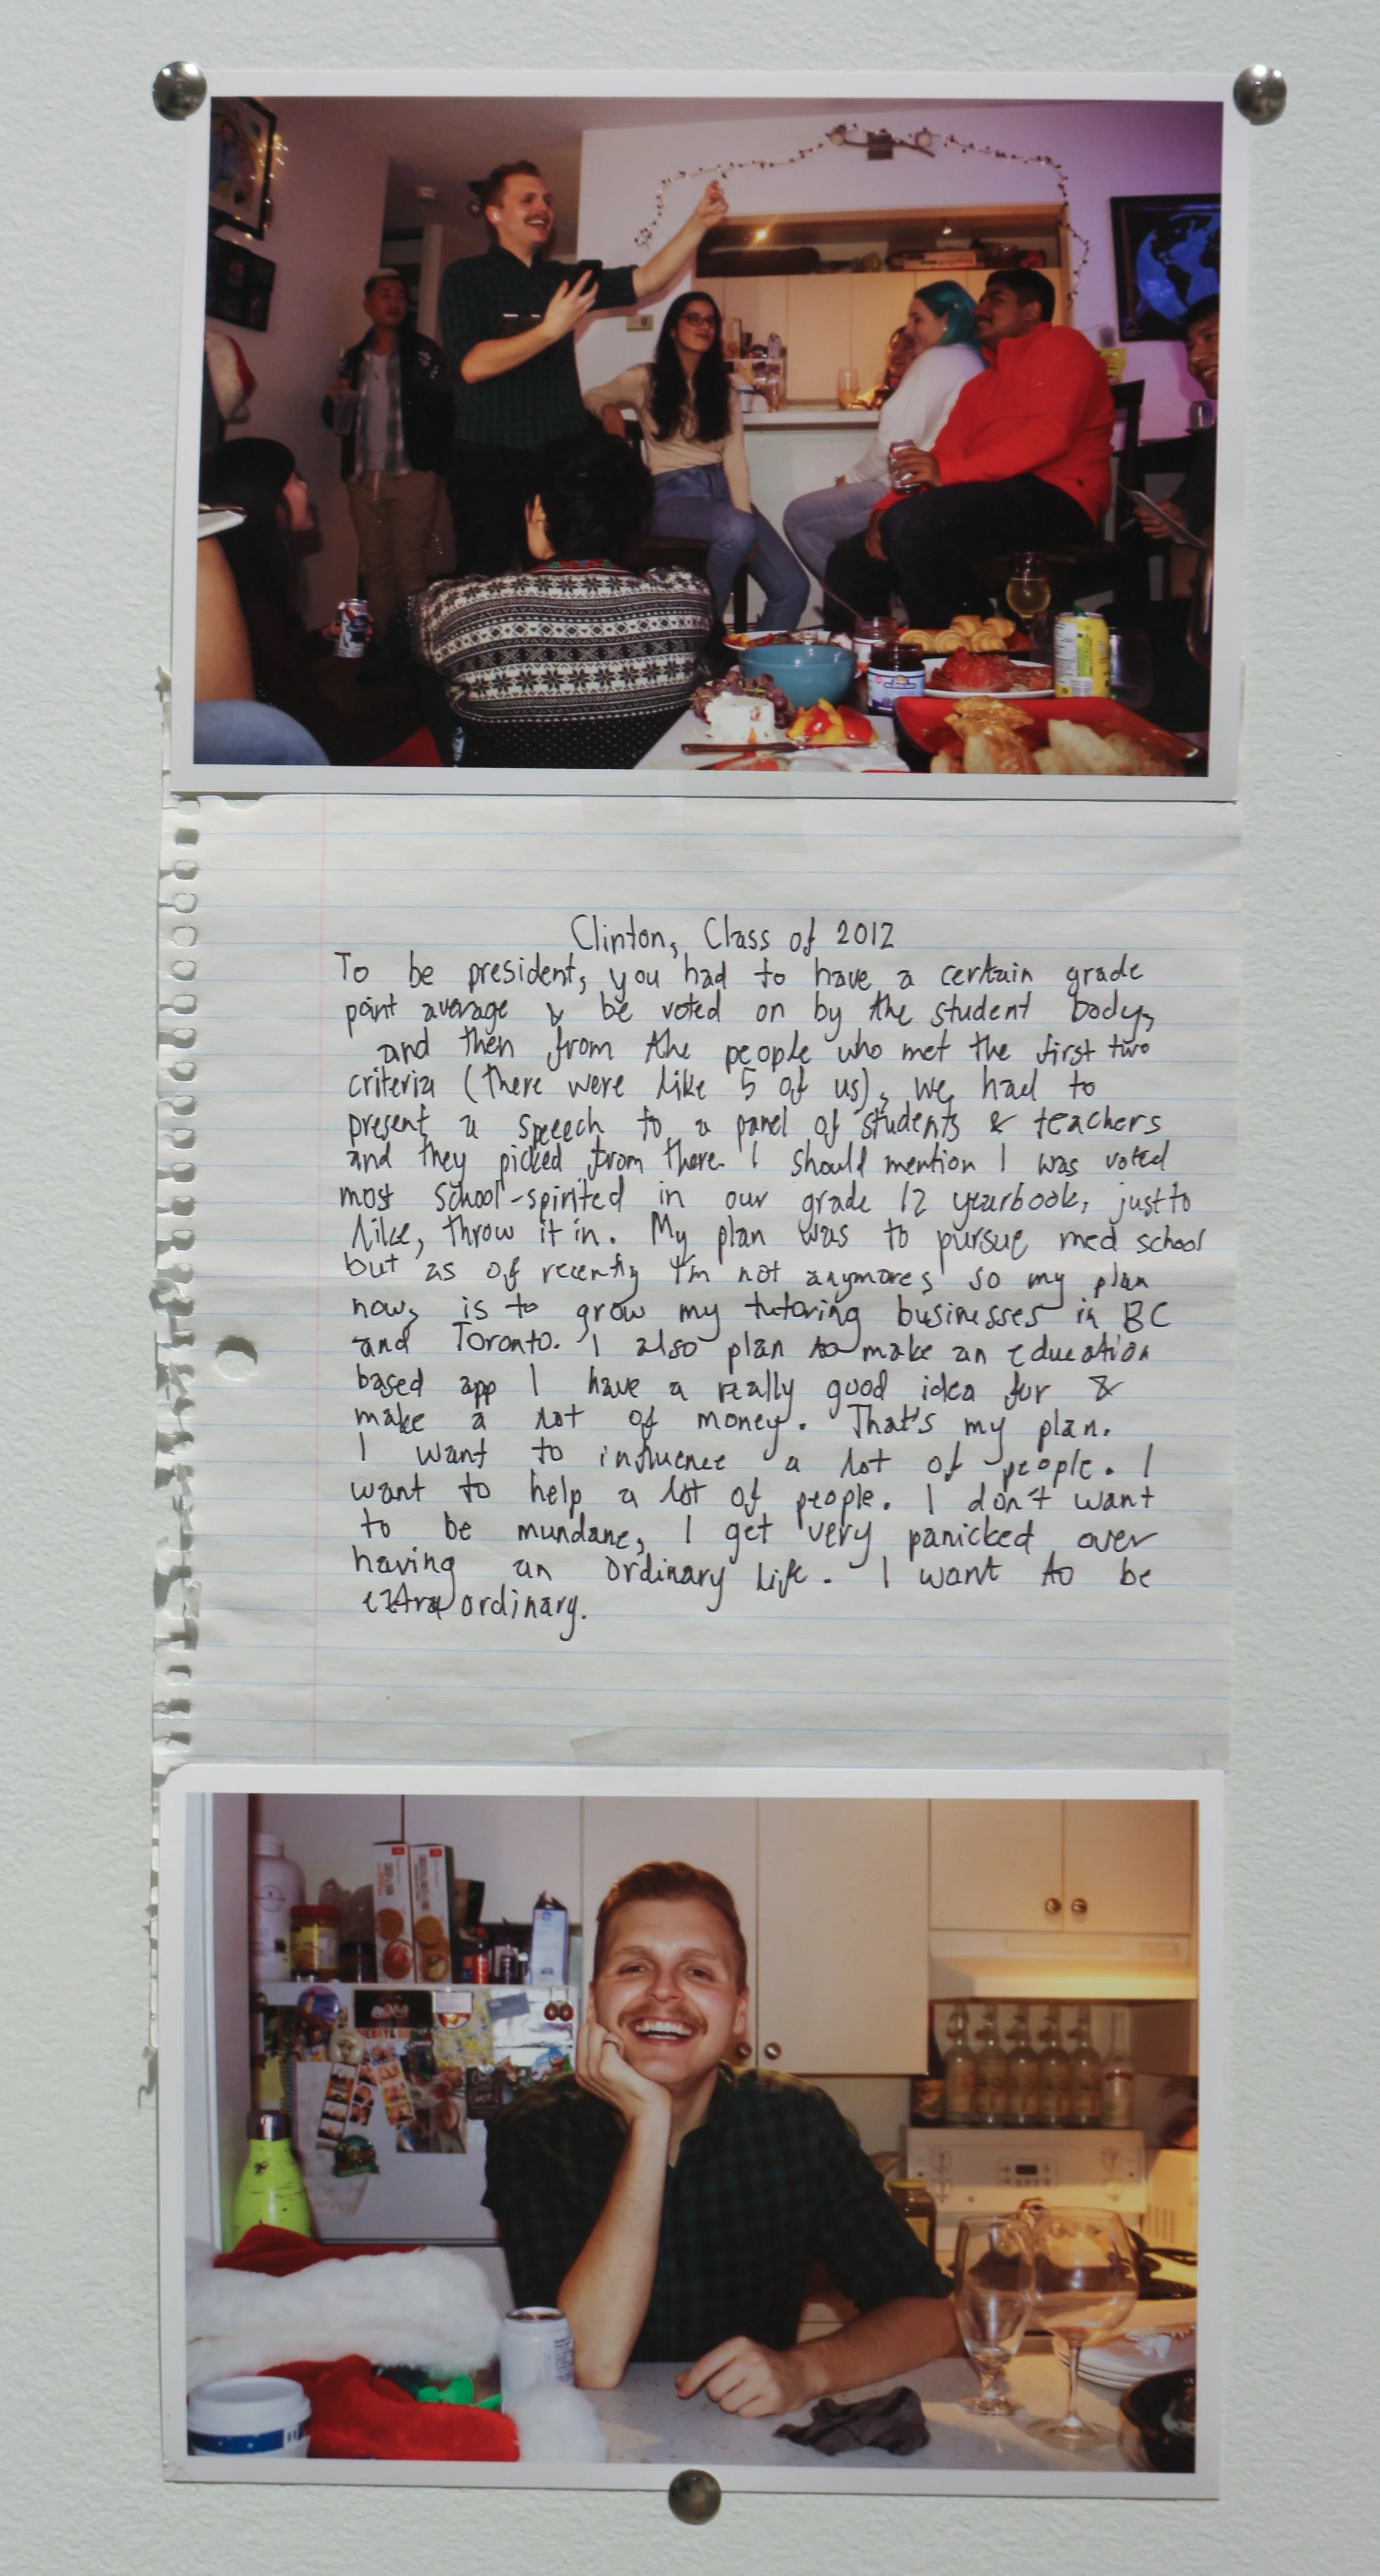 Clinton, Class of 2012
To be president, you had to have a certain grade
point average & be voted on by the student body,
and then from the people who met the first two
criteria (there were like 5 of us), we had to
present a speeech to a panel of students & teachers
and they picked from there. I should mention I was voted
most school-spirited in our grade 12 yearbook, just to
like, throw it in. My plan was to pursue med school
but as of recently I'm not anymore, so my plan
now, is to grow my tutoring businesses in BC
and Toronto. I also plan to make an education
based app I have a really good idea for &
make a lot of money. That's my plan.
I want to influence a lot of people. I
want to help a lot of people. I don't want
to be mundane, I get very panicked over
having an ordinary life. I want to be
extraordinary.